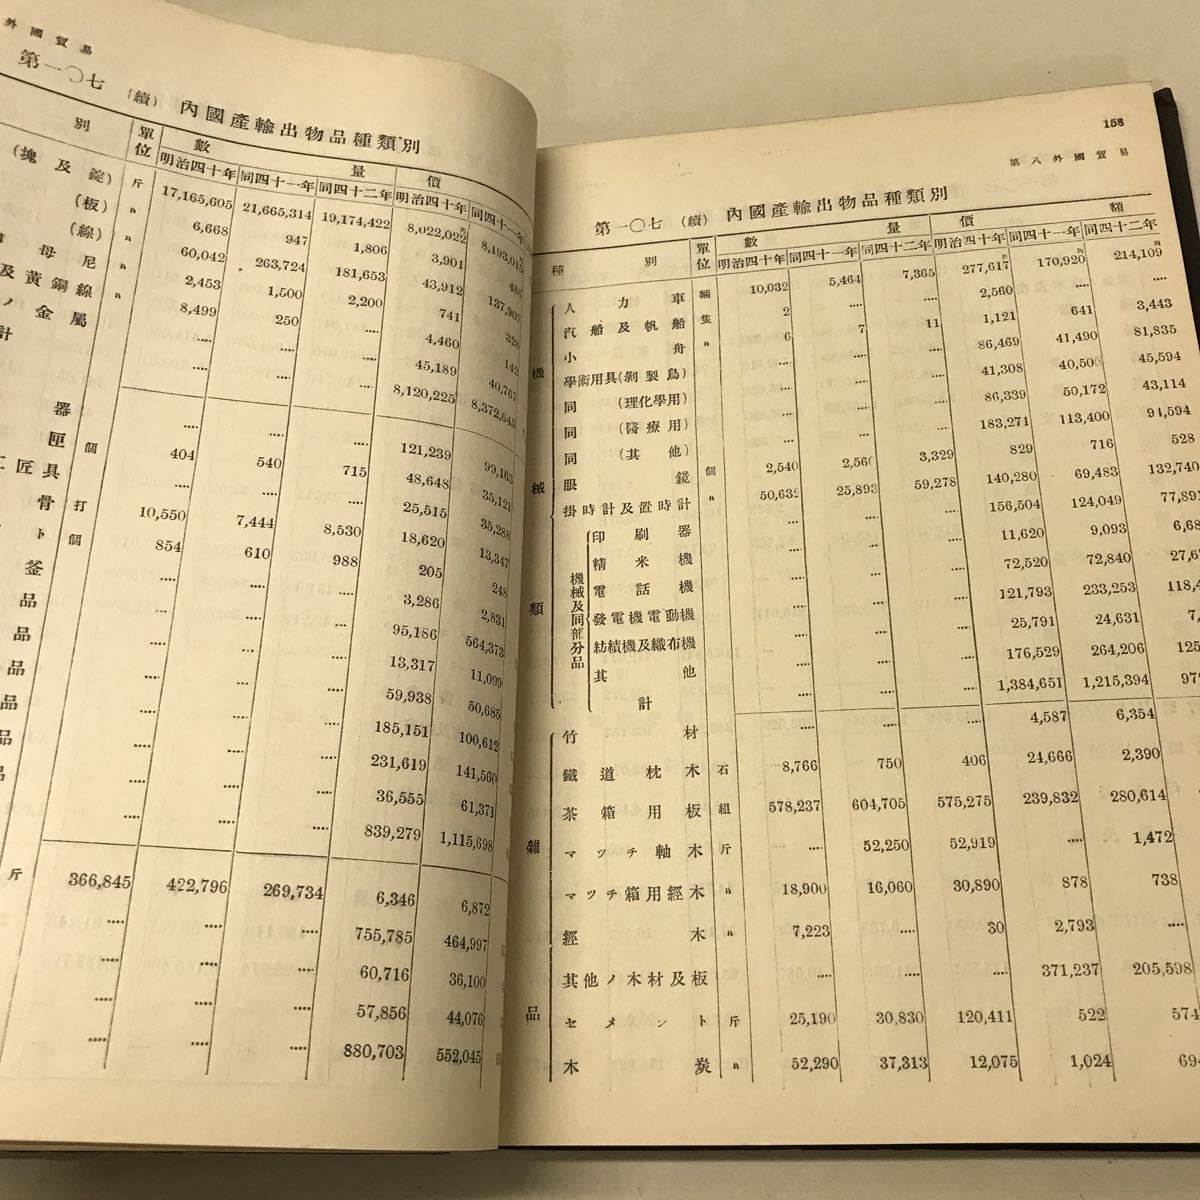 外國貿易
第一〇七 (續) 內國產輸出物品種類別
別 單位 數量 價
明治四十年 同四十一年 同四十二年 明治四十年 同四十一年
(塊及錠) 斤 17,165,605 21,665,314 19,174,422 8,022,022
(板) 〃 6,668 947 1,806 3,901
(線) 〃 60,042 263,724 181,653 43,912 137,907
母尼 〃 2,453 1,500 2,200 741 328
及黃銅線 〃 8,499 250 .... 4,460 142
ノ金屬 .... .... .... 45,189 40,767
計 8,120,225 8,372,645
器 .... .... .... 121,239 99,163
匣 個 404 540 715 48,648 35,121
工匠具 .... .... .... 25,515 35,288
骨 打 10,550 7,444 8,530 18,620 13,347
ト 個 854 610 988 205 248
釜 .... .... .... 3,286 2,831
品 .... .... .... 95,186 564,373
品 .... .... .... 13,317 11,099
品 .... .... .... 59,938 50,685
品 .... .... .... 185,151 100,612
品 .... .... .... 231,619 141,560
.... .... .... 36,555 61,371
.... .... .... 839,279 1,115,698
斤 366,845 422,796 269,734 6,346 6,872
.... .... .... 755,785 464,997
.... .... .... 60,716 36,100
.... .... .... 57,856 44,076
.... .... .... 880,703 552,045
158
第八 外國貿易
第一〇七 (續) 內國產輸出物品種類別
種別 單位 數量 價額
明治四十年 同四十一年 同四十二年 明治四十年 同四十一年 同四十二年
機械類
人力車 輛 10,032 5,464 7,365 277,617 170,920 214,109
汽船及帆船 隻 2 .... .... 2,560 .... ....
小舟 〃 6 7 11 1,121 641 3,443
學術用具(剝製鳥) .... .... .... 86,469 41,490 81,835
同 (理化學用) .... .... .... 41,308 40,506 45,594
同 (醫療用) .... .... .... 86,339 50,172 43,114
同 (其他) .... .... .... 183,271 113,400 94,594
眼鏡 個 2,540 2,566 3,329 829 716 528
掛時計及置時計 〃 50,632 25,893 59,278 140,280 69,483 132,740
機械及同部分品
印刷器 .... .... .... 156,504 124,049 77,891
精米機 .... .... .... 11,620 9,093
電話機 .... .... .... 72,520 72,840
發電機電動機 .... .... .... 121,793 233,253
紡績機及織布機 .... .... .... 25,791 24,631
其他 .... .... .... 176,529 264,206
計 .... .... .... 1,384,651 1,215,394
雜品
竹材 .... .... .... 4,587 6,354
鐵道枕木 石 8,766 750 406 24,666 2,390
茶箱用板 組 578,237 604,705 575,275 239,832 280,614
マツチ軸木 斤 .... 52,250 52,919 .... 1,472
マツチ箱用經木 〃 18,900 16,060 30,890 878 738
經木 〃 7,223 .... 30 2,793 ....
其他ノ木材及板 .... .... .... 371,237 205,598
セメント 斤 25,190 30,830 120,411 522 574
木炭 〃 52,290 37,313 12,075 1,024 694